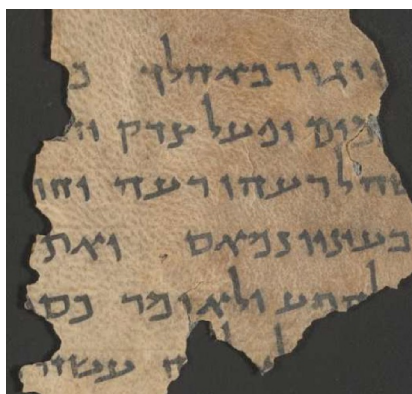 יגור באהלך מ
תמים ופעל צדק וד
שה לרעהו רעה וחר
בעיניו נמאס ואת
להרע ולא ימר כס
ח עשה